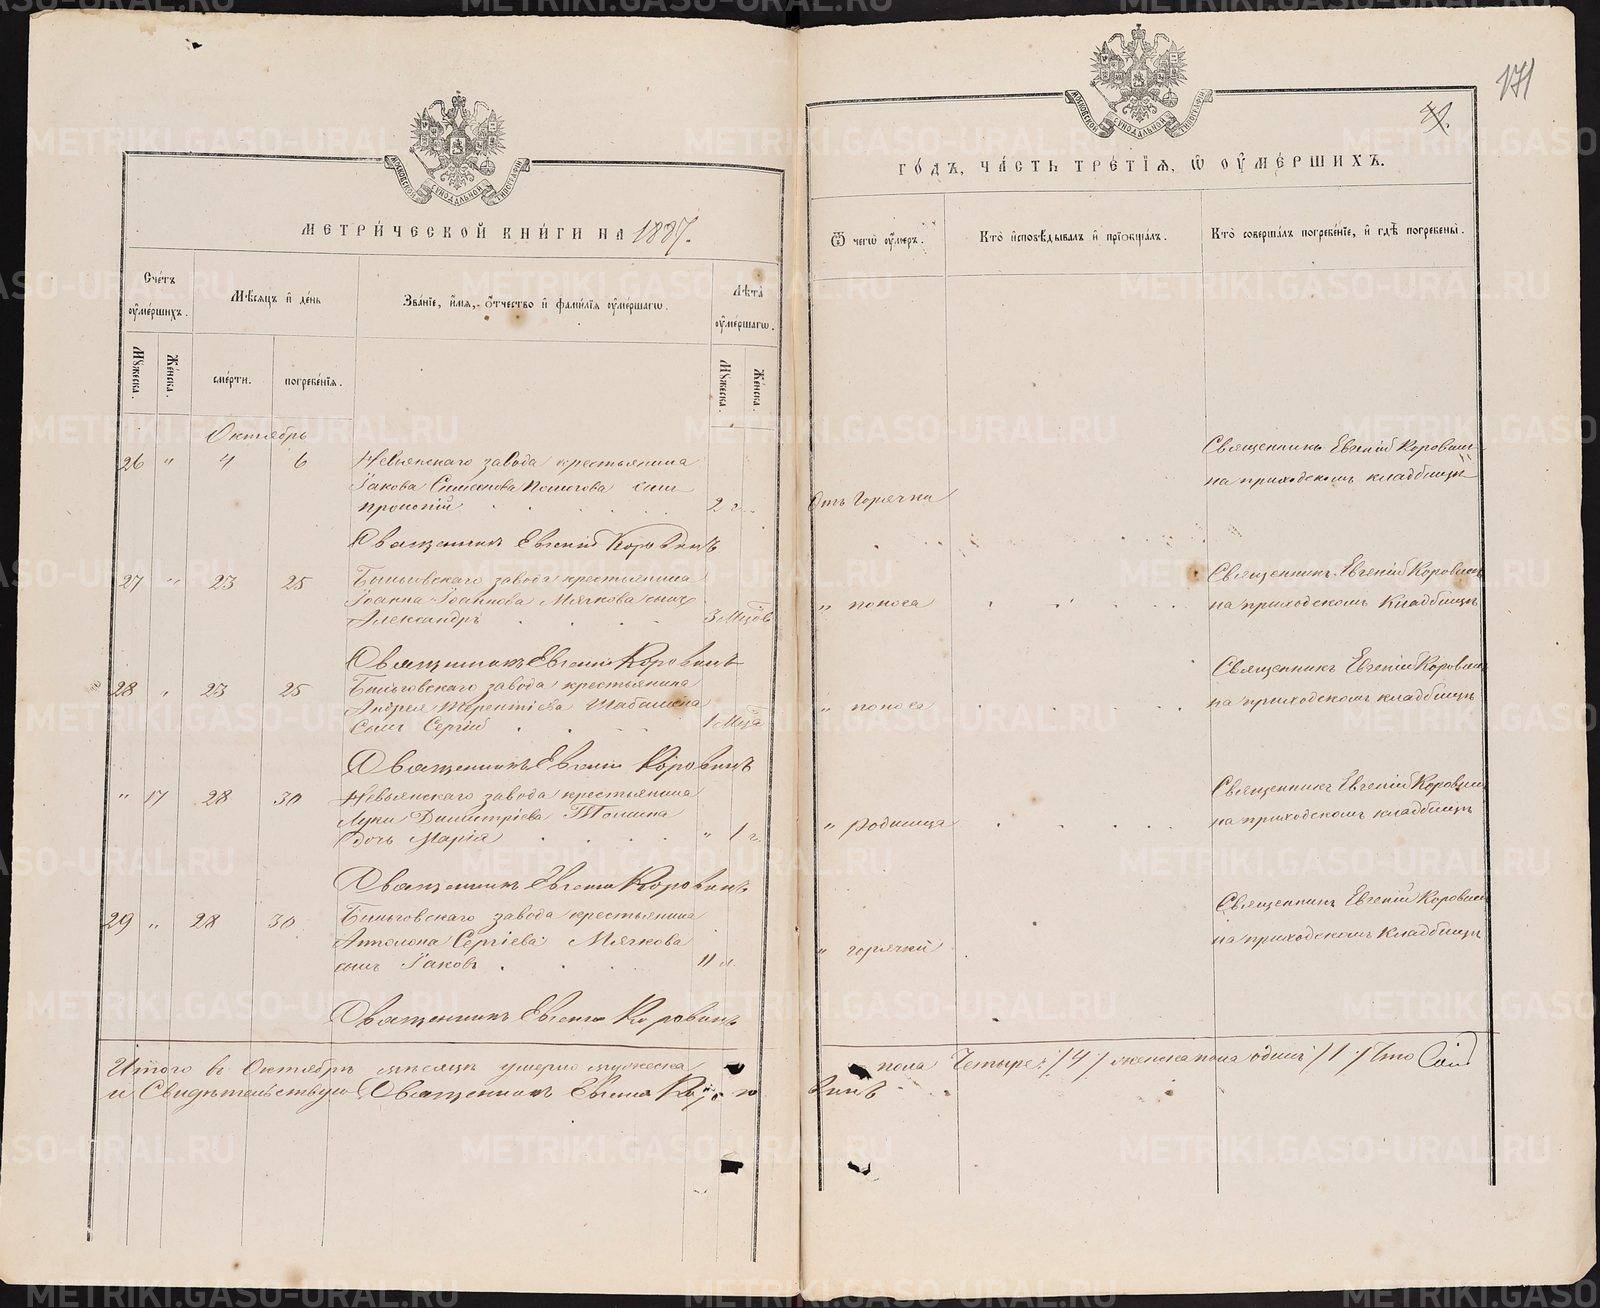 171
41.
МОСКОВСКОЙ СѴНОДАЛЬНОЙ ТИПОГРАФІИ
МОСКОВСКОЙ СѴНОДАЛЬНОЙ ТИПОГРАФІИ
МЕТРИ́ЧЕСКОЙ КНИ́ГИ НА 1887.
ГО́ДЪ, ЧА́СТЬ ТРЕ́ТІѦ, Ѽ ОУМЕ́РШИХЪ.
Счетъ оумершихъ.
Мѣсяцъ и день
Званіе, имя, отчество и фамилія оумершагѡ.
Лѣта оумершагѡ.
Ѿ чегѡ оумеръ.
Кто исповѣдывалъ и пріобщалъ.
Кто совершалъ погребеніе, и гдѣ погребены.
Мꙋжеска.
Женска.
смерти.
погребенія.
Мꙋжеска.
Женска.
Октябрь
26 " 4 6 Невьянскаго завода крестьянина
Іакова сынъ
2 г. Отъ горячки
Священникъ Евгеній Коровинъ
на приходскомъ кладбищѣ
Священникъ Евгеній Коровинъ
27 " 23 25 Быньговскаго завода крестьянина
Іоанна Іоаннова Мячкова сынъ
Александръ 3 Мцовъ " поноса
Священникъ Евгеній Коровинъ
на приходскомъ кладбищѣ
Священникъ Евгеній Коровинъ
28 " 23 25 Быньговскаго завода крестьянина
Андрея Терентіева
сынъ Сергій 1 Мца " поноса
Священникъ Евгеній Коровинъ
на приходскомъ кладбищѣ
Священникъ Евгеній Коровинъ
" 17 28 30 Невьянскаго завода крестьянина
Луки Димитріева
дочь Марія " 1 г. " родимца
Священникъ Евгеній Коровинъ
на приходскомъ кладбищѣ
Священникъ Евгеній Коровинъ
29 " 28 30 Быньговскаго завода крестьянина
Сергіева Мячкова
сынъ Іаковъ 11 л. " горячки
Священникъ Евгеній Коровинъ
на приходскомъ кладбищѣ
Священникъ Евгеній Коровинъ
Итого въ Октябрѣ мѣсяцѣ умерло мужеска пола четыре /4/ женска пола одинъ /1/ Что Сим
и Свидѣтельствую Священникъ Евгеній Коровинъ
METRIKI.GASO-URAL.RU